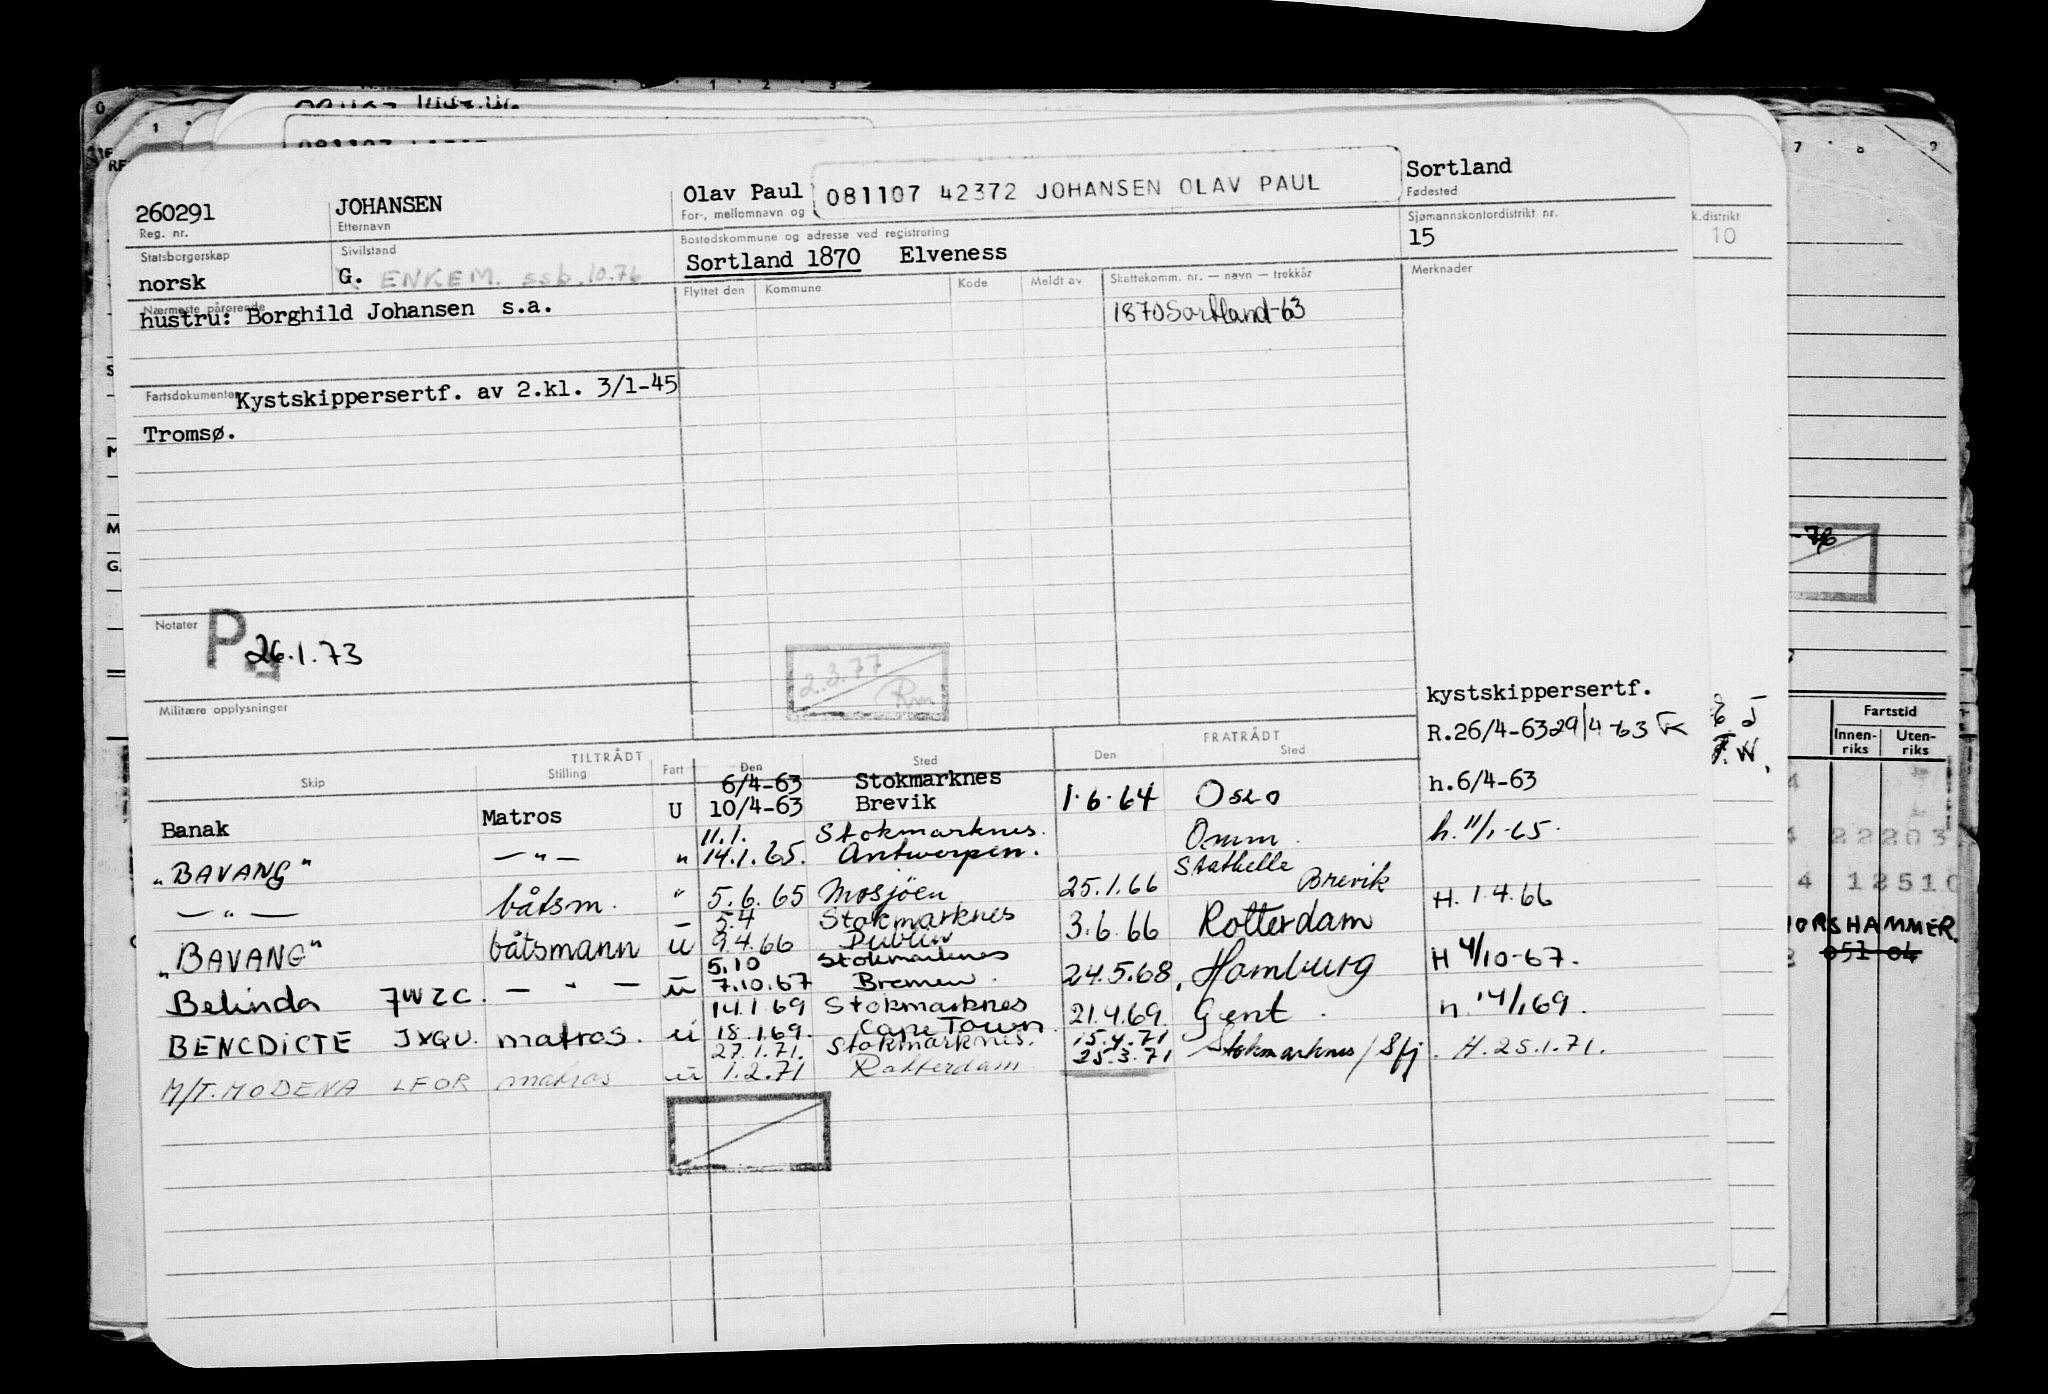 260291 JOHANSEN Olav Paul 081107 42372 JOHANSEN OLAV PAUL Sortland
Reg. nr. Etternavn For-, mellomnavn og Fødested
Statsborgerskap Sivilstand Bostedskommune og adresse ved registrering Sjømannskontordistrikt nr. k.distrikt
norsk G. ENKEM. ssb.10.76 Sortland 1870 Elveness 15 10
Nærmeste pårørende Flyttet den Kommune Kode Meldt av Skattekomm. nr. — navn — trekkår Merknader
hustru: Borghild Johansen s.a. 1870 Sortland-63
Fartsdokumenter Kystskippersertf. av 2.kl. 3/1-45
Tromsø.
Notater P 26.1.73
2.3.77
Rm
Militære opplysninger kystskippersertf.
R.26/4-63 29/4-63
TILTRÅDT FRATRÅDT
Skip Stilling Fart Den Sted Den Sted
6/4-63 Stokmarknes h.6/4-63
Banak Matros U 10/4-63 Brevik 1.6.64 Oslo
11.1. Stokmarknes. h. 11/1-65.
"BAVANG" — " — " 14.1.65. Antwerpen.
Stathelle
— " — båtsm. " 5.6.65 Mosjöen 25.1.66 Brevik H. 1.4.66
5.4 Stokmarknes
"BAVANG" båtsmann u 9.4.66 Dublin 3.6.66 Rotterdam
5.10 Stokmarknes H 4/10-67.
Belinda JWZC. — " — u 7.10.67 Bremen. 24.5.68, Hamburg
14.1.69 Stokmarknes n. 14/1.69.
BENEDICTE JXQU. matros. u 18.1.69. Cape Town. 21.4.69. Gent.
27.1.71. Stokmarknes. 15.4.71
M/T. MODENA LEOR matros u 1.2.71 Rotterdam 25.3.71 Stokmarknes / Sfj. H.25.1.71.
7 8 9
-76
Fartstid
Innen-riks Uten-riks
22203
4 12510
HORSHAMMER.
051 04